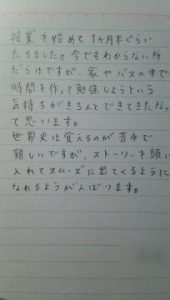 授業を始めて1ヶ月半ぐらい
たちました。今でもわからない所
だらけですが、家やバスの中で
時間を作って勉強しようという
気持ちがきちんとできてきたなっ
て思います。
世界史は覚えるのが苦手で
難しいですが、ストーリーを頭に
入れてスムーズに出てくるように
なれるようがんばります。